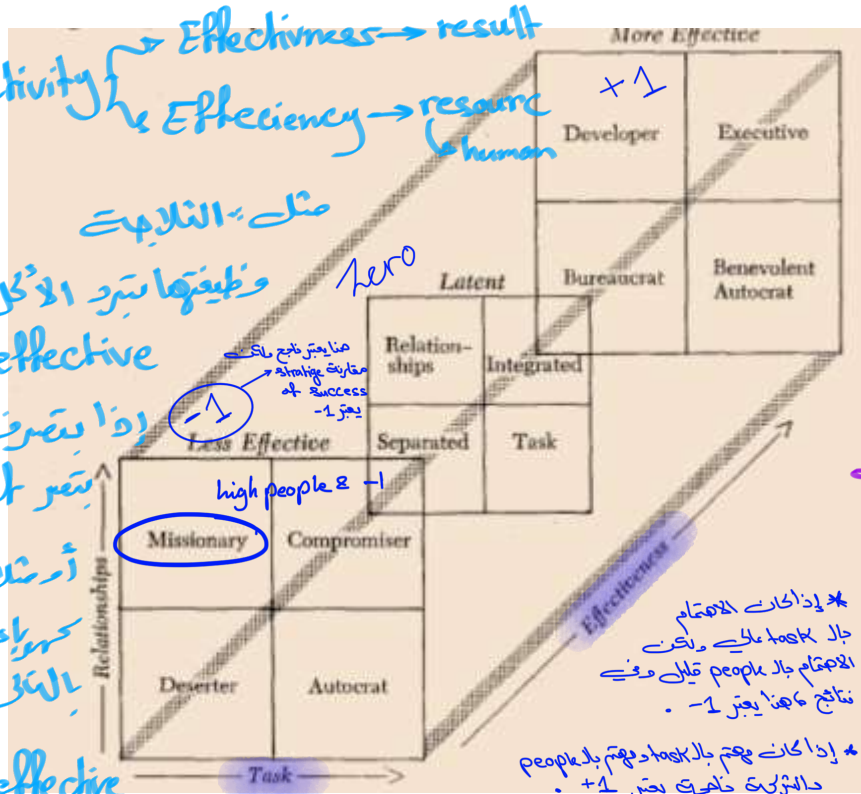 Effectivness → result
tivity
Effeciency → resourc
human
مثل :- الثلاجة
وظيفتها تبرد الأكل
effective
إذا بتصرف
أو مثلا
effective
More Effective
+1
Developer
Executive
Bureaucrat
Benevolent
Autocrat
Zero
Latent
Relation-
ships
Integrated
Separated
Task
هنا يعتبر ناجح
of success
يعتبر -1
-1
Less Effective
high people & -1
Missionary
Compromiser
Deserter
Autocrat
Relationships
Task
Effectiveness
* إذا كان الاهتمام
بال task عالي ولكن
الاهتمام بال people قليل وفي
نتائج هنا يعتبر -1 .
* إذا كان مهتم بال task ومهتم بال people
ناجحة يعتبر +1 .